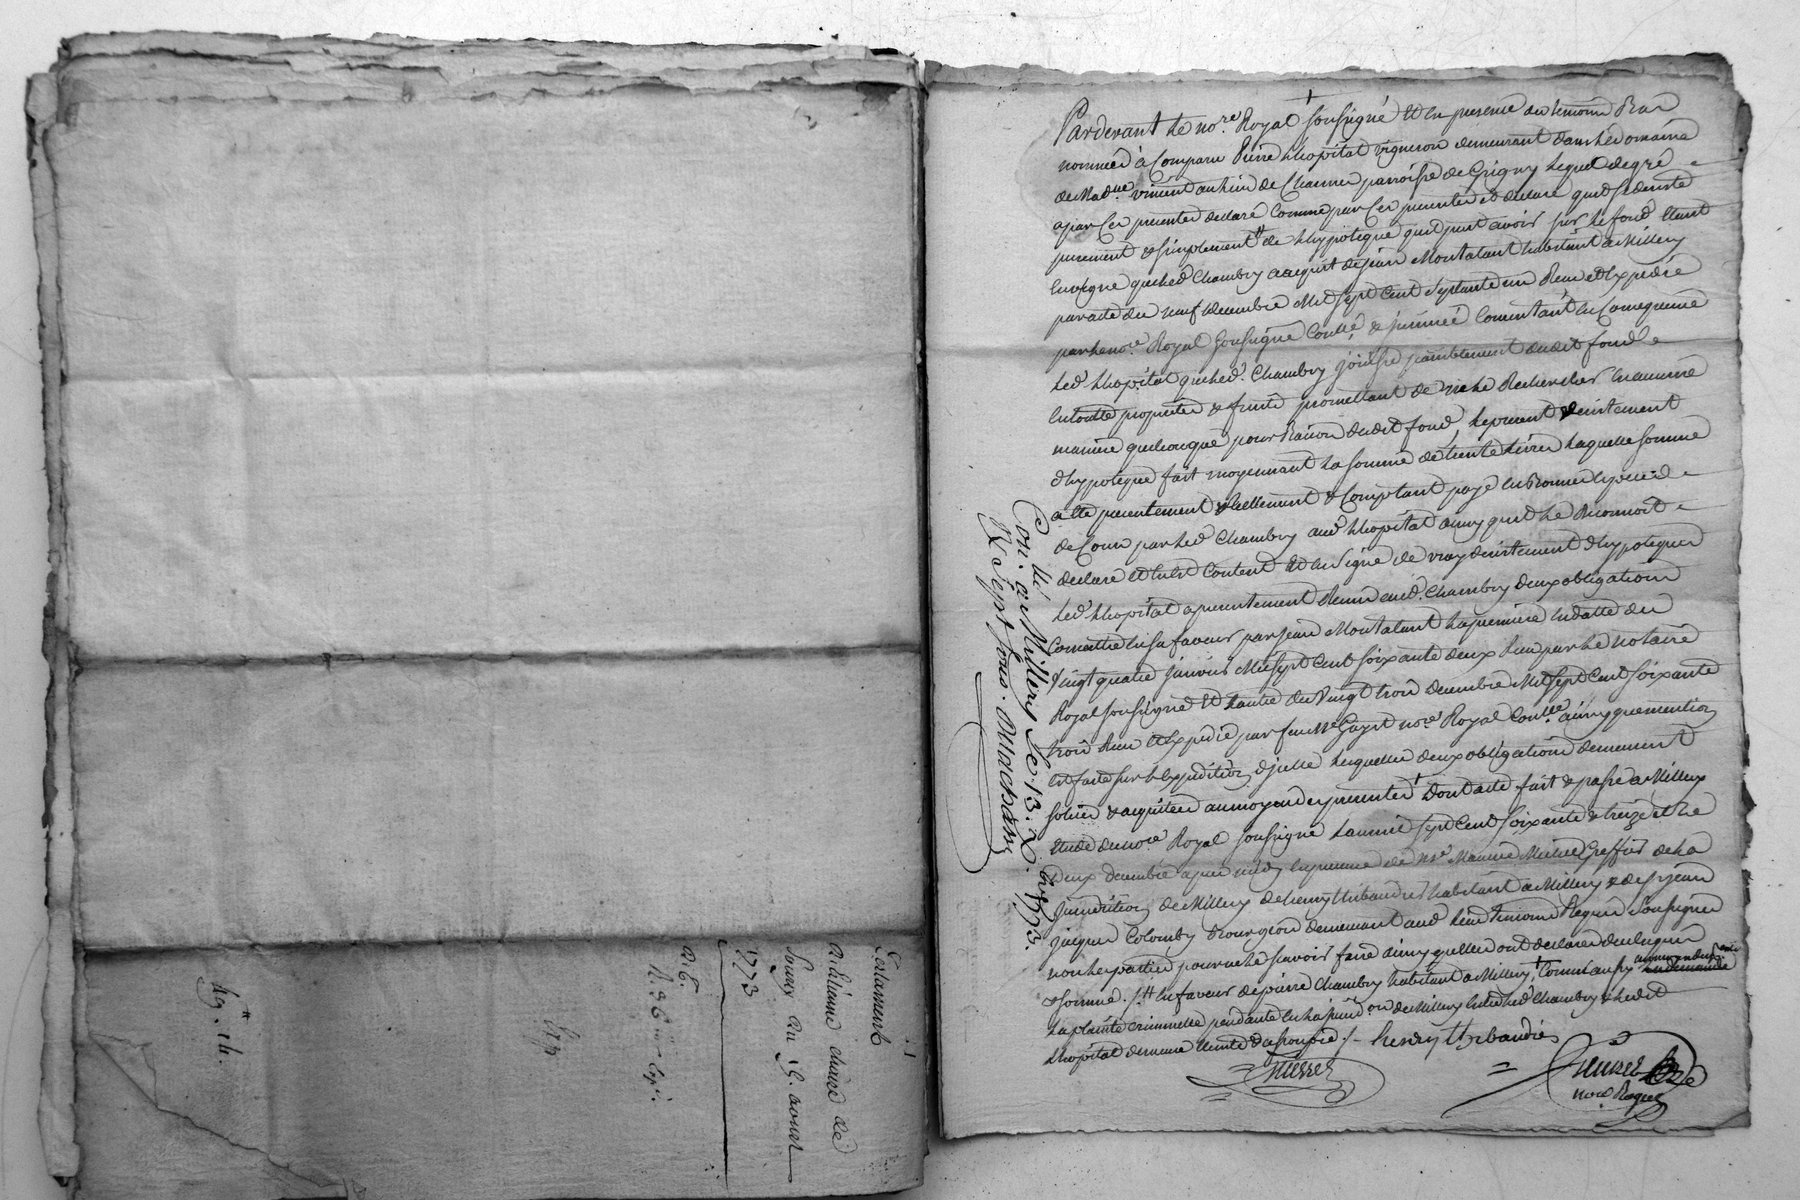 Testament
d'Etienne chave de
Souzy du 15. aoust
1773
Pardevant le no.re Royal soussigné et en presence des temoins bas
nommés à Comparu Pierre Lhopital vigneron demeurant dans le domaine
de Mad.lle vincent au lieu de Chanier parroisse de Grigny lequel de gré
a par ces presentes declaré comme par ces presentes il declare qu'il se desiste
purement & simplement # de l'hypoteque qu'il peut avoir sur le fond etant
en vigne que led Chambry a acquit de Jean Montalant habitant a Millery
par acte du neuf decembre mil sept cent septante un Reçu et expedié
par le no.re Royal soussigné Con.lé & insinué Consentant en consequence
led Lhopital que led. Chambry jouisse paisiblement dudit fond
en toutte proprieté & fruits promettant de ne le Rechercher en aucune
maniere quelconque pour Raison dudit fond, le present desistement
d'hypoteque fait moyennant la somme de trente livres laquelle somme
a été presentement Réellement & Comptant payé en bonnes especes
de Cours par led Chambry aud Lhopital ainsy qu'il le Reconnoit
declare et en est Content et en signe de vray desistement d'hypoteque
led Lhopital a presentement Remis aud. Chambry deux obligations
Consenties en sa faveur par Jean Montalant la premiere en datte du
vingt quatre janvier mil sept cent soixante deux Reçu par le notaire
Royal soussigné et l'autre du vingt trois decembre mil sept cent soixante
trois Reçu et expedié par feu M.e Gayet no.re Royal Con.lle ainsy que mention
est faite sur l'expédition d'icelle lesquelles deux obligations demeurent
solues & acquittées au moyen des presentes † Dont acte fait & passé a Millery
etude du no.re Royal soussigné l'an mil sept cent soixante & treize et le
Deux decembre apres midy en presence de M.e Maurice Meunier Greffier de la
Jurisdiction de Millery de henry thibaudier habitant a Millery & de s.r jean
jacques Colomby Bourgeois demeurant aud lieu temoins Requis soussignés
non les parties pour ne le savoir faire ainsy qu'elles ont declaré de ce enquis
& sommé. /# en faveur de pierre Chambry habitant a Millery † Comme aussy au moyen du
la plainte criminelle pendante en la jurid.on de Millery entre led Chambry & ledit
Lhopital demeure eteinte & assoupie /- henry thibaudier
no.re Royal
Con.lé à Millery le 13. X.bre 1773.
R. sept sous.